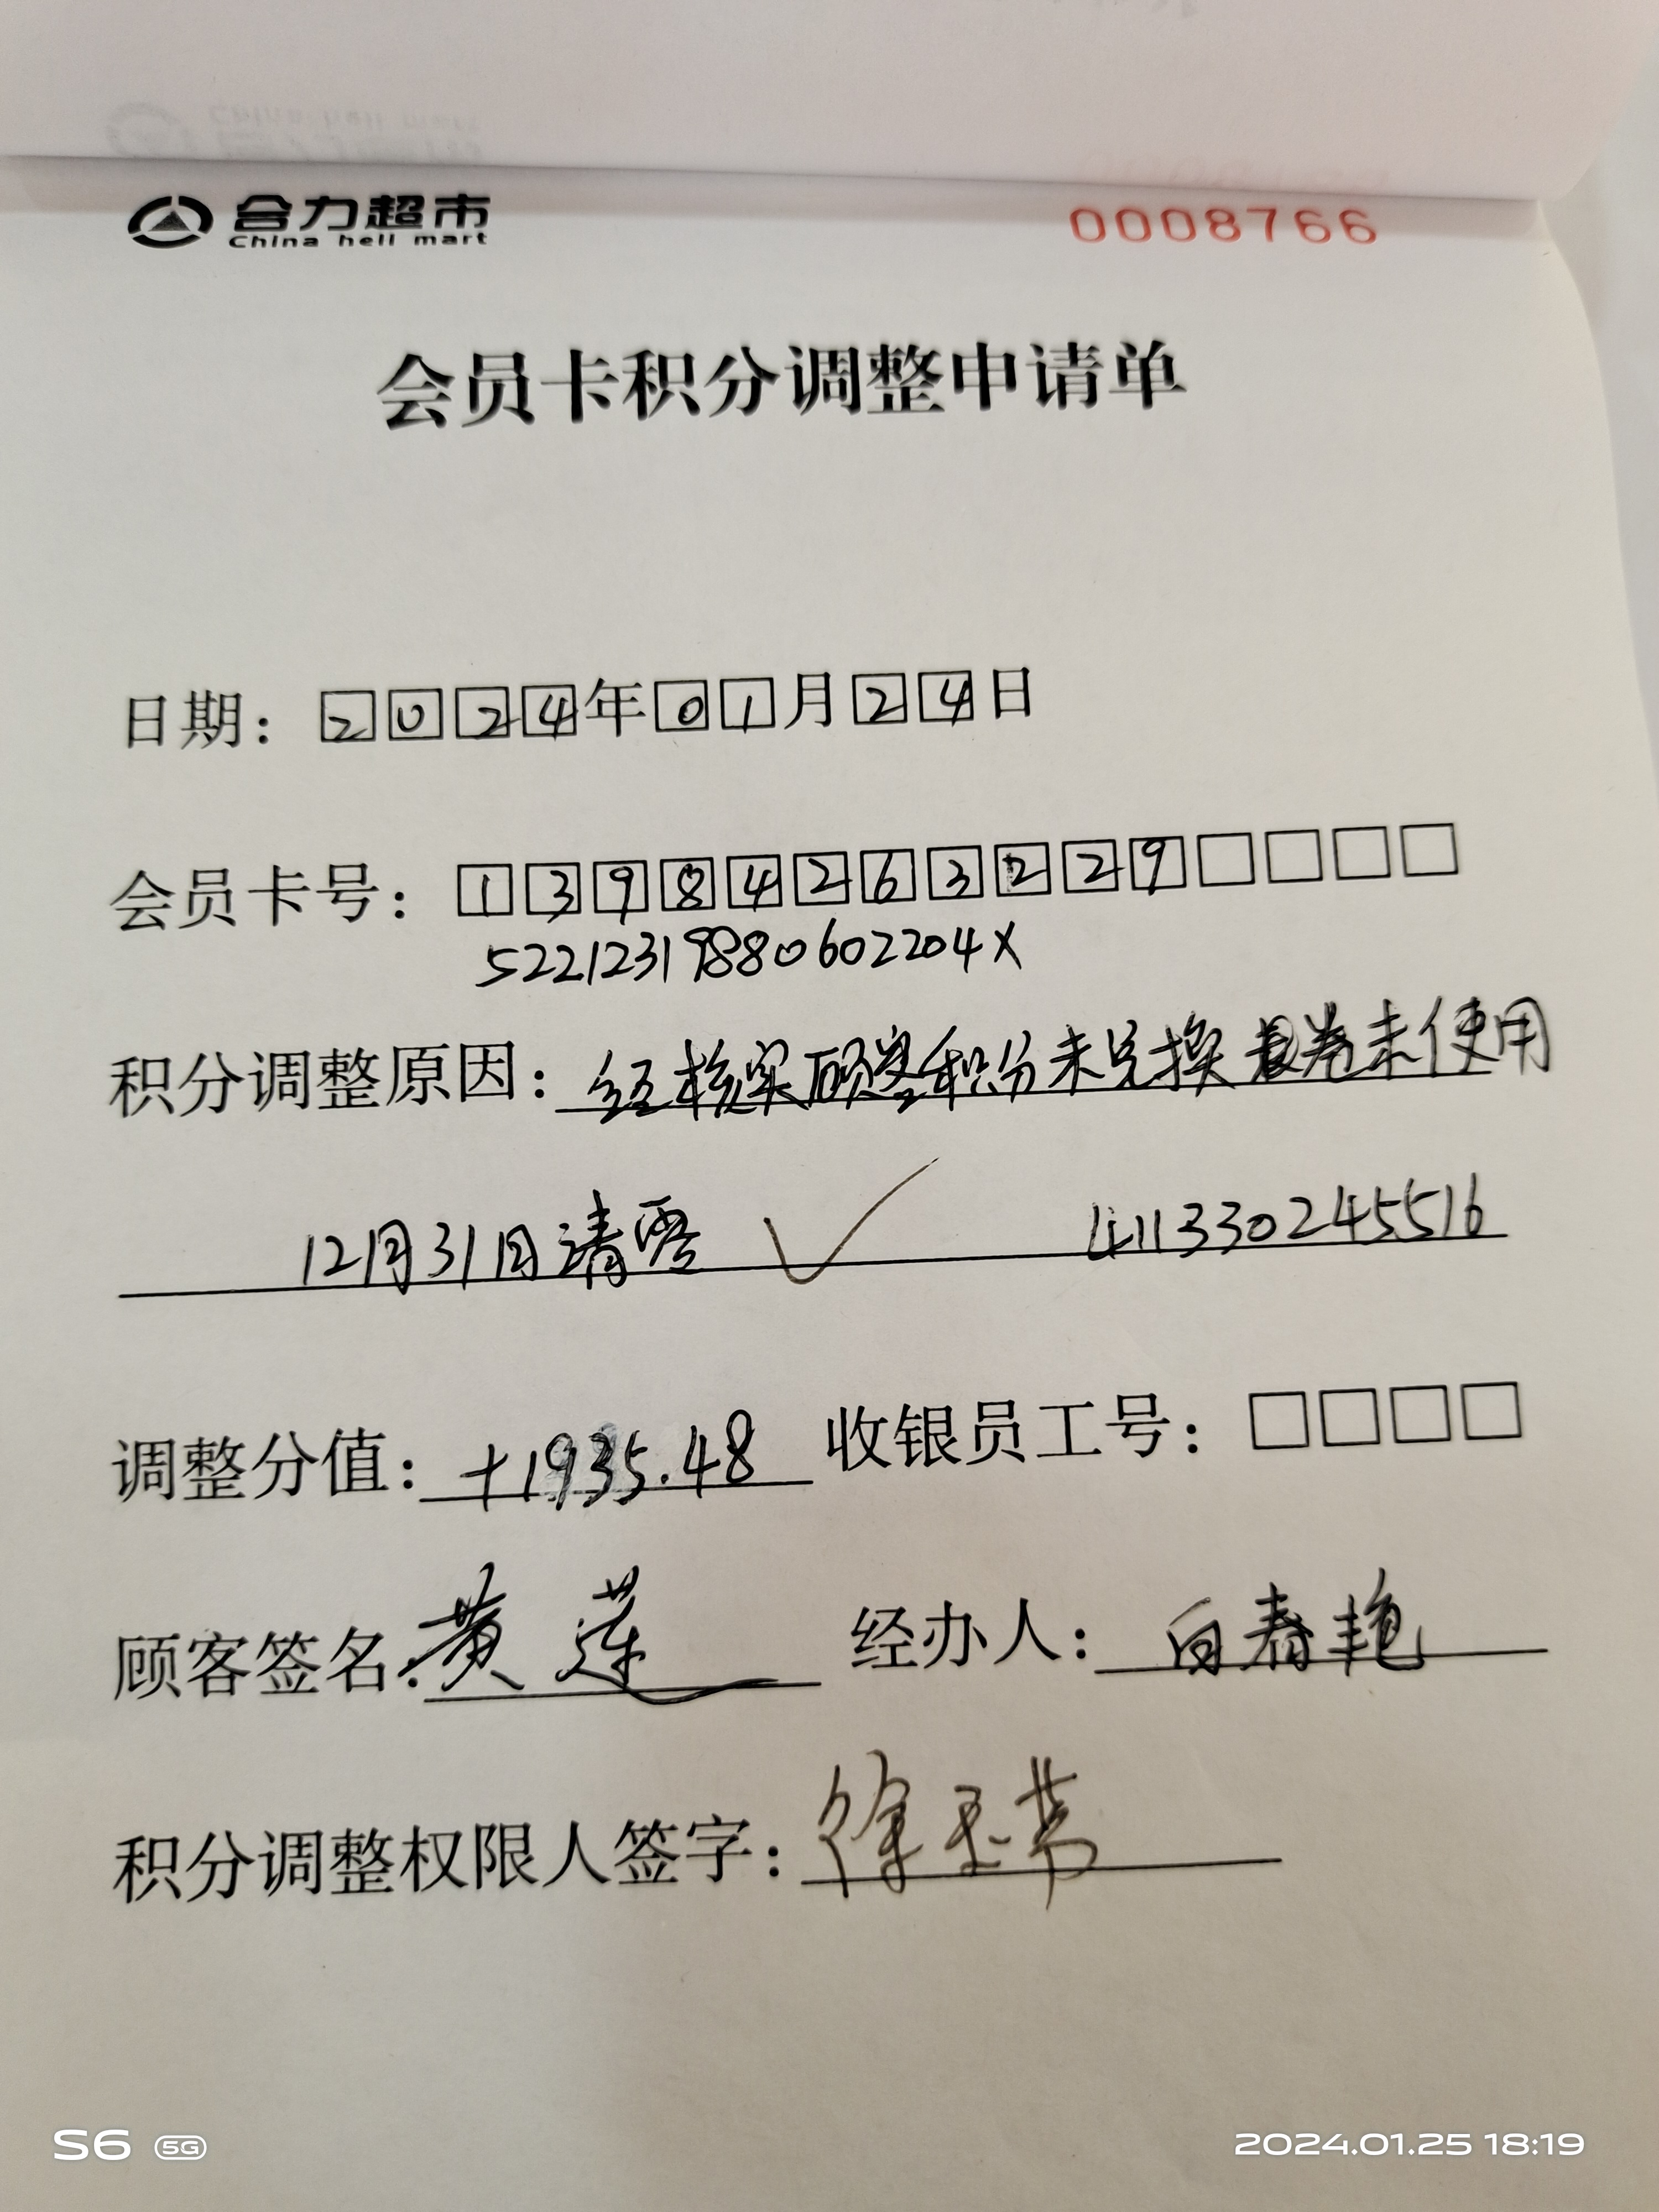 合力超市 0008766
China heli mart
会员卡积分调整申请单
日期：2024年01月24日
会员卡号：13984263229
52212319880602204X
积分调整原因：经核实顾客积分未兑换 卷未使用
12月31日清零 411330245516
调整分值：+1935.48 收银员工号：
顾客签名：黄莲 经办人：白春艳
积分调整权限人签字：徐玉
S6 5G 2024.01.25 18:19